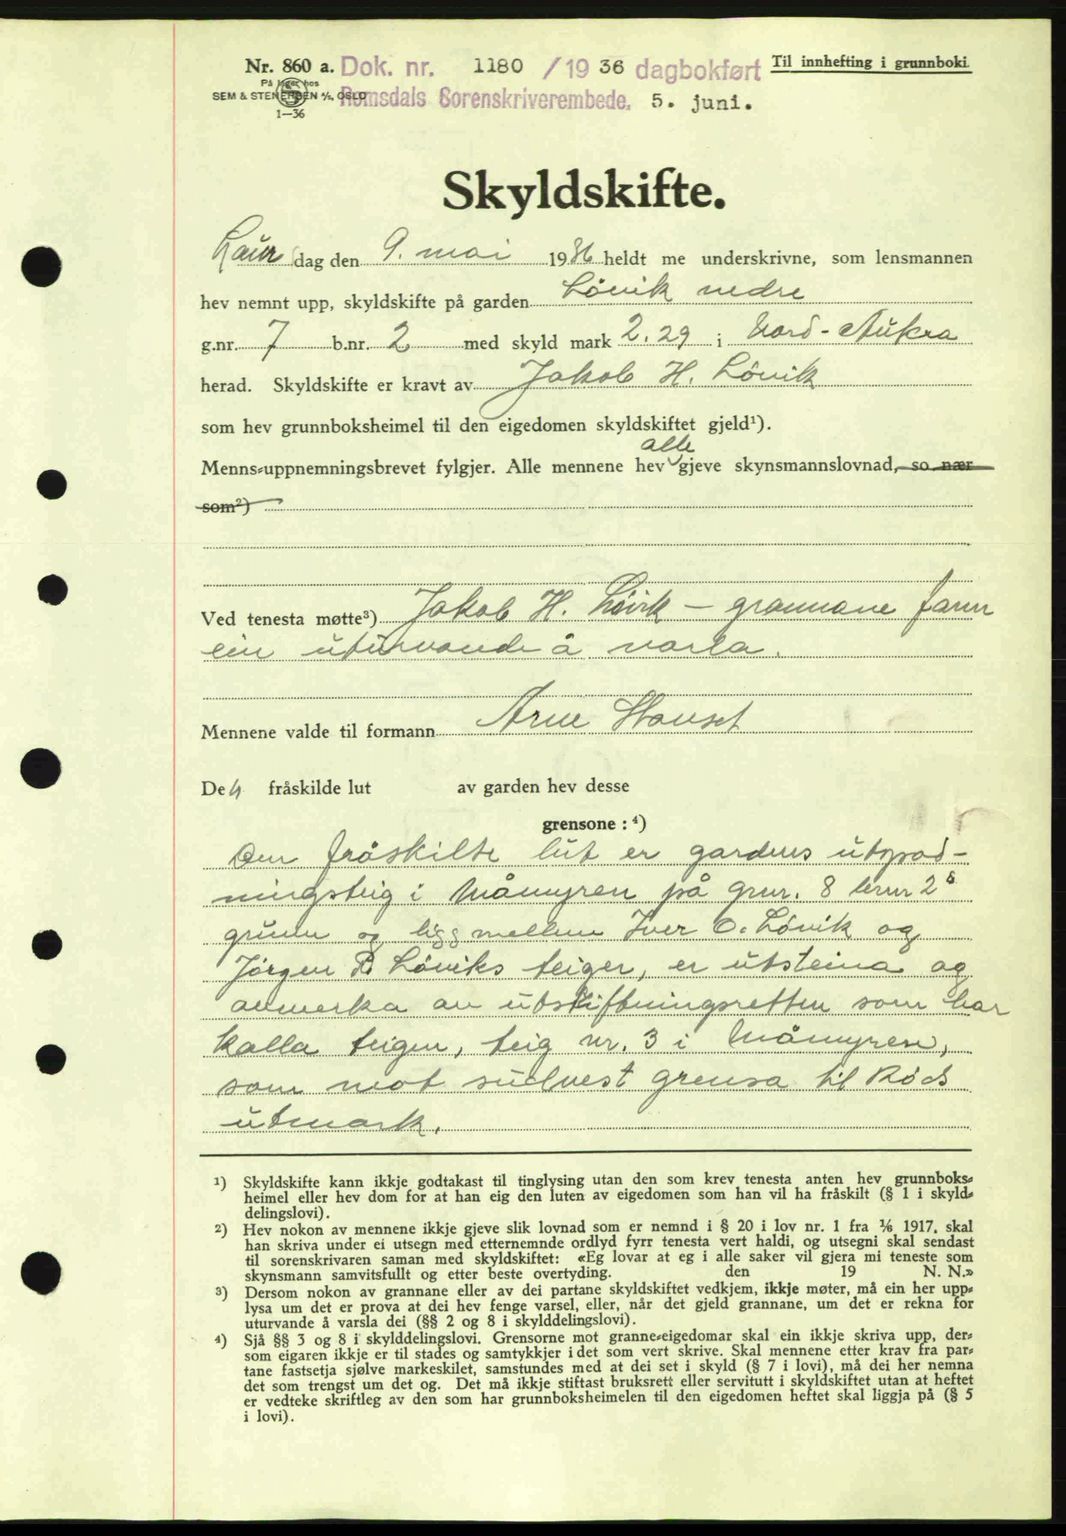 Nr. 860 a. Dok. nr. 1180 / 19 36 dagbokført Til innhefting i grunnboki.
På lager hos
SEM & STENERSEN A/S, OSLO Romsdals Sorenskriverembede. 5. juni.
1—36
Skyldskifte.
Laurdag den 9. mai 1936 heldt me underskrivne, som lensmannen
hev nemnt upp, skyldskifte på garden Lövik nedre
g.nr. 7 b.nr. 2 med skyld mark 2.29 i Nord-Aukra
herad. Skyldskifte er kravt av Jakob H. Lövik
som hev grunnboksheimel til den eigedomen skyldskiftet gjeld¹).
alle
Menns-uppnemningsbrevet fylgjer. Alle mennene hev gjeve skynsmannslovnad, so nær
som²)
Ved tenesta møtte³) Jakob H. Lövik – grannane fann
ein uturvande å varla.
Mennene valde til formann Arne Hauset
De4 fråskilde lut av garden hev desse
grensone : ⁴)
Den fråskilte lut er gardens utmark-
ningsteig i Måmyren på grnr. 8 brnr 2s
grunn og ligg mellem Iver O. Lövik og
Jörgen P. Löviks teiger, er utsteina og
avmerka av utskiftningsretten som har
kalla teigen, teig nr. 3 i Måmyren,
som mot südvest grensa til Röds
utmark.
¹) Skyldskifte kann ikkje godtakast til tinglysing utan den som krev tenesta anten hev grunnboks-
heimel eller hev dom for at han eig den luten av eigedomen som han vil ha fråskilt (§ 1 i skyld-
delingslovi).
²) Hev nokon av mennene ikkje gjeve slik lovnad som er nemnd i § 20 i lov nr. 1 fra 1/6 1917, skal
han skriva under ei utsegn med etternemnde ordlyd fyrr tenesta vert haldi, og utsegni skal sendast
til sorenskrivaren saman med skyldskiftet: «Eg lovar at eg i alle saker vil gjera mi teneste som
skynsmann samvitsfullt og etter beste overtyding. den 19 N. N.»
³) Dersom nokon av grannane eller av dei partane skyldskiftet vedkjem, ikkje møter, må ein her upp-
lysa um det er prova at dei hev fenge varsel, eller, når det gjeld grannane, um det er rekna for
uturvande å varsla dei (§§ 2 og 8 i skylddelingslovi).
⁴) Sjå §§ 3 og 8 i skylddelingslovi. Grensorne mot granne-eigedomar skal ein ikkje skriva upp, der-
som eigaren ikkje er til stades og samtykkjer i det som vert skrive. Skal mennene etter krav fra par-
tane fastsetja sjølve markeskilet, samstundes med at dei set i skyld (§ 7 i lovi), må dei her nemna
det som trengst um det og. Det må ikkje stiftast bruksrett eller servitutt i skyldskiftet utan at heftet
er vedteke skriftleg av den som har grunnboksheimelen til den eigedomen heftet skal liggja på (§ 5
i lovi).